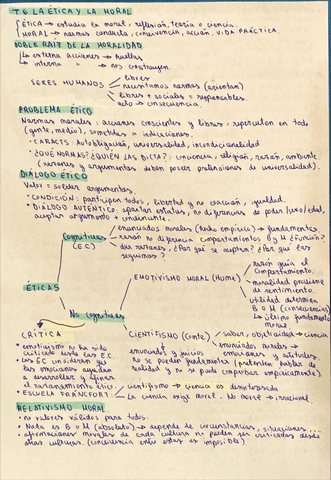 T.6 LA ÉTICA Y LA MORAL
ÉTICA → estudia la moral, reflexión, teoría o ciencia.
MORAL → normas conducta, convivencia, acción, VIDA PRÁCTICA.
DOBLE RAÍZ DE LA MORALIDAD
externa acciones → huellas
interna " → nos construyen.
SERES HUMANOS
libres
necesitamos normas (orientan)
libres + sociales = responsables.
acto → consecuencia.
PROBLEMA ÉTICO
Normas morales: acciones conscientes y libres, repercuten en todo
(gente, medio), sometidas a indicaciones.
• CARACTS: Autobligación, universalidad, incondicionalidad
• ¿QUÉ NORMAS? ¿QUIÉN LAS DICTA?: conciencia, religión, razón, ambiente
(razones y argumentos deben poseer pretensiones de universalidad).
DIÁLOGO ÉTICO
Valor = solidez argumentos.
• CONDICIÓN: participen todos, libertad y no coacción, igualdad.
• DIÁLOGO AUTÉNTICO: apartar estatus, no diferencias de poder/sexo/edad,
aceptar argumento + convincente.
ÉTICAS
Cognitivas (EC)
enunciados morales (dado empírico) → fundamentar.
razón no diferencia comportamientos B y M ¿FUNCIÓN?
dar razones, ¿Por qué se siguen? ¿Por qué las
seguimos?
No cognitivas
EMOTIVISMO MORAL (Hume)
razón guía el
comportamiento.
moralidad proviene
de sentimiento.
utilidad determina
B o M (consecuencias)
La último fundamento
moral.
CIENTIFISMO (Comte)
saber, objetividad → ciencia
enunciados morales →
emociones y actitudes.
enunciados y juicios
no se pueden fundamentar (pretenden hablar de
realidad y no se puede comprobar empíricamente).
CRÍTICA
• emotivismo no ha sido
criticado desde las EC.
• Las EC consideran que
las emociones ayudan
a desarrollar y afinar
el razonamiento ético
• ESCUELA FRANCFORT:
cientifismo → ciencia es desvalorizada
La ciencia exige moral. No serlo → irracional.
RELATIVISMO MORAL
• no valores válidos para todos.
• Nada es B o M (absoluto) → depende de circunstancias, situaciones...
• afirmaciones morales de cada cultura no pueden ser criticadas desde
otras culturas. (coincidencia entre estas es imposible)